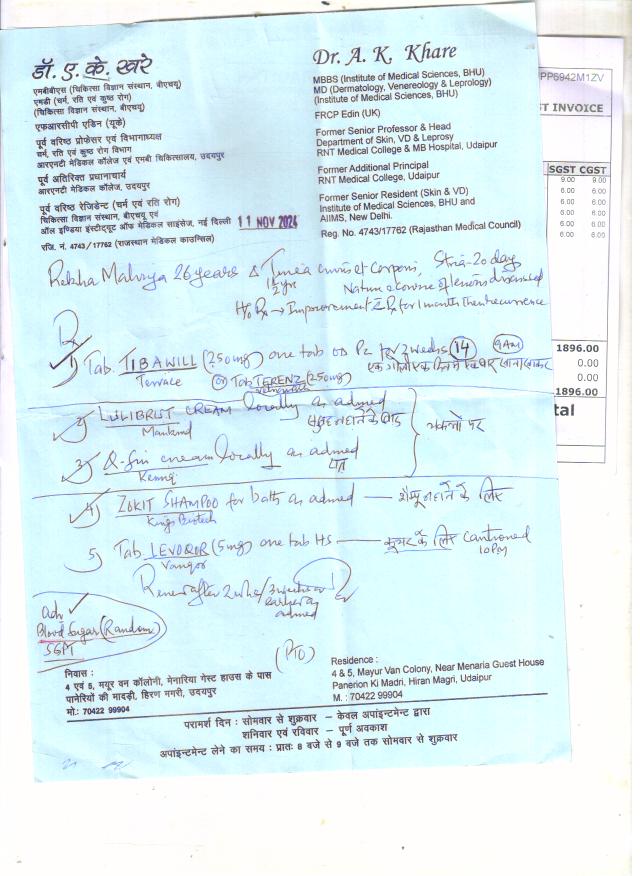 डॉ. ए. के. खरे
एमबीबीएस (चिकित्सा विज्ञान संस्थान, बीएचयू)
एमडी (चर्म, रति एवं कुष्ठ रोग)
(चिकित्सा विज्ञान संस्थान, बीएचयू)
एफआरसीपी एडिन (यूके)
पूर्व वरिष्ठ प्रोफेसर एवं विभागाध्यक्ष
चर्म, रति एवं कुष्ठ रोग विभाग
आरएनटी मेडिकल कॉलेज एवं एमबी चिकित्सालय, उदयपुर
पूर्व अतिरिक्त प्रधानाचार्य
आरएनटी मेडिकल कॉलेज, उदयपुर
पूर्व वरिष्ठ रेजिडेंट (चर्म एवं रति रोग)
चिकित्सा विज्ञान संस्थान, बीएचयू एवं
ऑल इण्डिया इंस्टीट्यूट ऑफ मेडिकल साइंसेज, नई दिल्ली
रजि. नं. 4743/17762 (राजस्थान मेडिकल काउन्सिल)
11 NOV 2024
Dr. A. K. Khare
MBBS (Institute of Medical Sciences, BHU)
MD (Dermatology, Venereology & Leprology)
(Institute of Medical Sciences, BHU)
FRCP Edin (UK)
Former Senior Professor & Head
Department of Skin, VD & Leprosy
RNT Medical College & MB Hospital, Udaipur
Former Additional Principal
RNT Medical College, Udaipur
Former Senior Resident (Skin & VD)
Institute of Medical Sciences, BHU and
AIIMS, New Delhi.
Reg. No. 4743/17762 (Rajasthan Medical Council)
PP6942M1ZV
T INVOICE
SGST CGST
9.00 9.00
6.00 6.00
6.00 6.00
6.00 6.00
6.00 6.00
6.00 6.00
1896.00
0.00
0.00
1896.00
tal
Rekha 26 years Δ Tinea cruris et corporis, Stria-20 days
1½ yrs Nature & course of lesions discussed
H/o Rx → Improvement Rx for 1 month then recurrence
Rx
1) Tab. TIBAWILL (250mg) one tab OD Pc for 2 weeks (14) 9 Am
Terrace Tab TERENZ (250mg)
2) LULIBRUT CREAM locally as advised सुबह नहाने के बाद
Mankind
3) cream locally as advised रात
4) ZOKIT SHAMPOO for bath as advised — शैम्पू नहाने के लिए
Kings Biotech
5) Tab. (5mg) one tab HS — के लिए Cautioned
10 PM
Renew after 2 wks/3 weeks or
earlier as
advised
Adv
Blood Sugar (Random)
(PTO)
निवास :
4 एवं 5, मयूर वन कॉलोनी, मेनारिया गेस्ट हाउस के पास
पानेरियों की मादड़ी, हिरण मगरी, उदयपुर
मो.: 70422 99904
Residence :
4 & 5, Mayur Van Colony, Near Menaria Guest House
Panerion Ki Madri, Hiran Magri, Udaipur
M. : 70422 99904
परामर्श दिन : सोमवार से शुक्रवार – केवल अपांइन्टमेन्ट द्वारा
शनिवार एवं रविवार – पूर्ण अवकाश
अपांइन्टमेन्ट लेने का समय : प्रातः 8 बजे से 9 बजे तक सोमवार से शुक्रवार